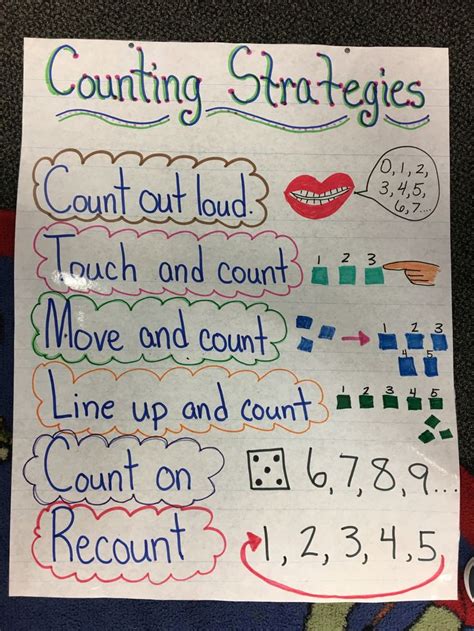 Counting Strategies
Count out loud.
0, 1, 2,
3, 4, 5,
6, 7...
Touch and count
1 2 3
Move and count
1 2 3
4 5
Line up and count
1 2 3 4 5
Count on
6, 7, 8, 9...
Recount
1, 2, 3, 4, 5,